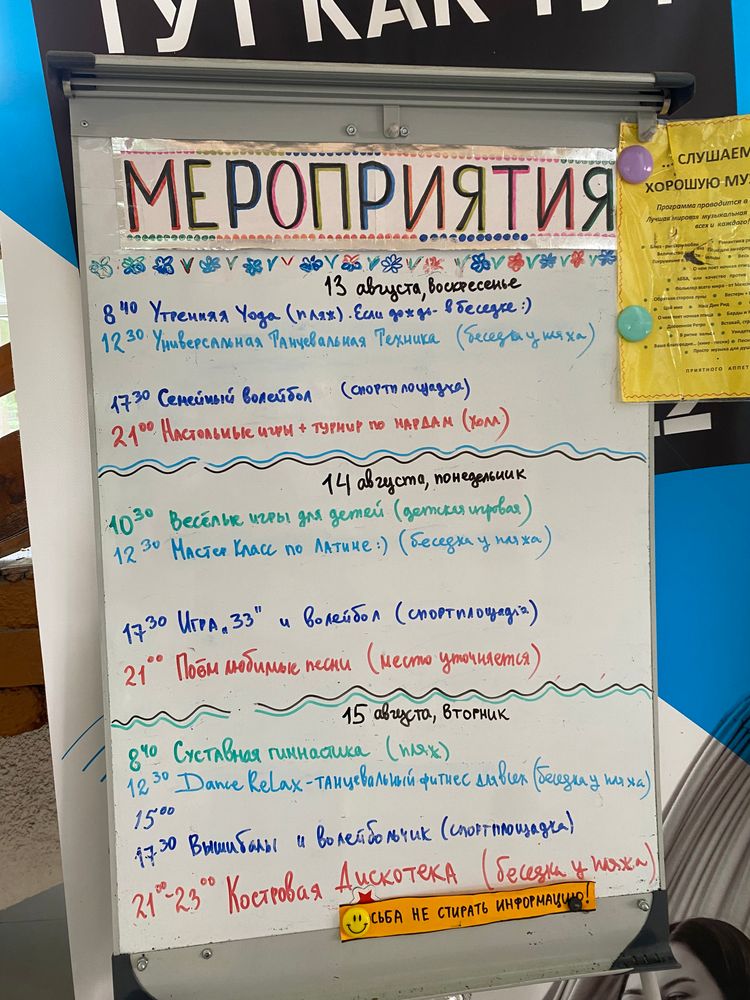 ТУТ КАК ТУТ
МЕРОПРИЯТИЯ
13 августа, воскресенье
8 40 Утренняя Йога (пляж). Если дождь - в беседке :)
12 30 Универсальная Танцевальная Техника (беседка у пляжа)
17 30 Семейный волейбол (спортплощадка)
21 00 Настольные игры + турнир по нардам (холл)
14 августа, понедельник
10 30 Весёлые игры для детей (детская игровая)
12 30 Мастер Класс по Латине :) (беседка у пляжа)
17 30 Игра "33" и волейбол (спортплощадка)
21 00 Поём любимые песни (место уточняется)
15 августа, вторник
8 40 Суставная гимнастика (пляж)
12 30 Dance Relax - танцевальный фитнес для всех (беседка у пляжа)
15 00
17 30 Вышибалы и волейбольчик (спортплощадка)
21 00 - 23 00 Костровая Дискотека (беседка у пляжа)
СЬБА НЕ СТИРАТЬ ИНФОРМАЦИЮ!
... СЛУШАЕМ
ХОРОШУЮ МУЗ
Программа проводится в
Лучшая мировая музыкальная
всех и каждого!
ПРИЯТНОГО АППЕТ